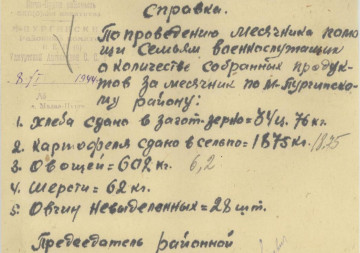 Справка.
По проведению месячника помо
щи семьям военнослужащих
о количестве собранных продук-
тов за месячник по М-Пургинско-
му району:
8 / VI 1944
1. Хлеба сдано в загот-зерно = 84 ц. 76 кг.
2. Картофеля сдано в сельпо = 1875 кг. 18,75
3. Овощей = 602 кг. 6,2
4. Шерсти = 62 кг.
5. Овчин невыделенных = 28 шт.
Председатель районной